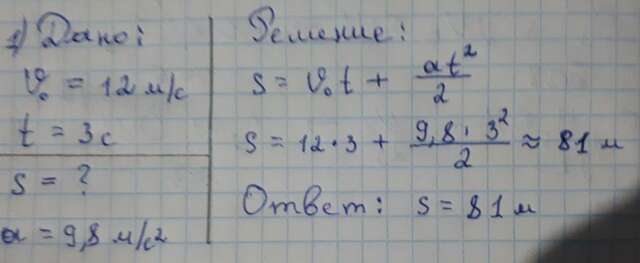 1) Дано:
V₀ = 12 м/с
t = 3с
s = ?
a = 9,8 м/с²
Решение:
s = V₀t + at²/2
s = 12·3 + 9,8·3²/2 ≈ 81 м
Ответ: s = 81 м